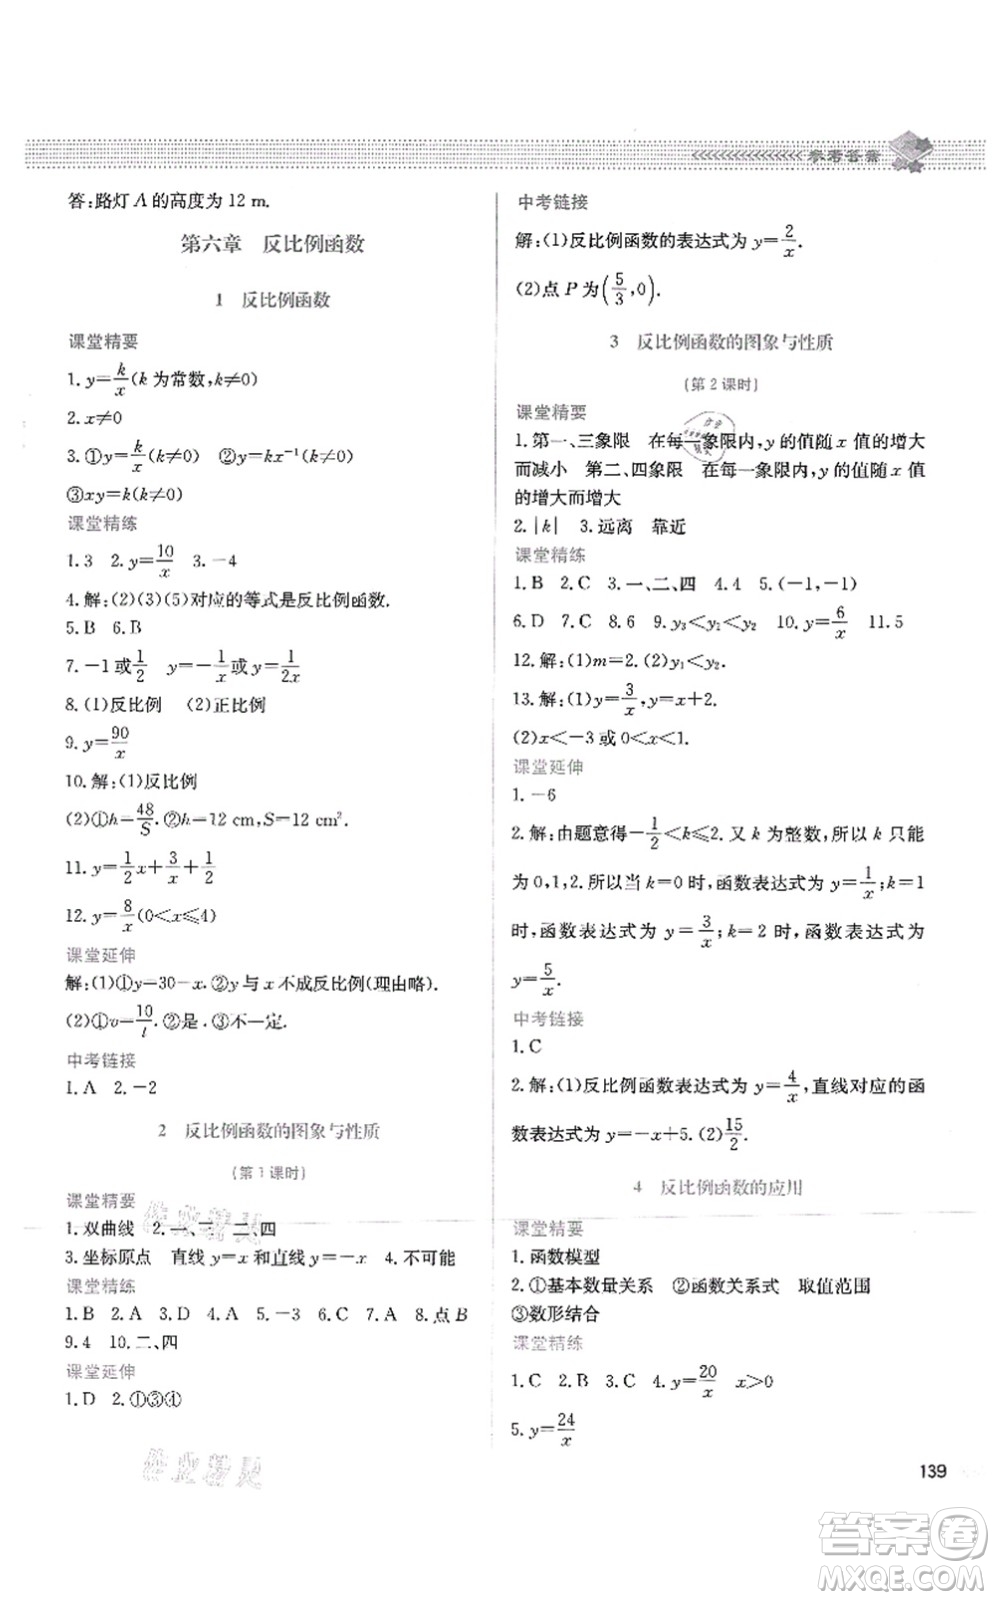 参考答案
答:路灯 A 的高度为 12 m.
第六章 反比例函数
1 反比例函数
课堂精要
1. y=k/x(k 为常数,k≠0)
2. x≠0
3. ①y=k/x(k≠0) ②y=kx⁻¹(k≠0)
③xy=k(k≠0)
课堂精练
1. 3 2. y=10/x 3. -4
4. 解:(2)(3)(5)对应的等式是反比例函数.
5. B 6. B
7. -1或1/2 y=-1/x或y=1/2x
8. (1)反比例 (2)正比例
9. y=90/x
10. 解:(1)反比例
(2)①h=48/S. ②h=12 cm,S=12 cm².
11. y=1/2x+3/x+1/2
12. y=8/x(0<x≤4)
课堂延伸
解:(1)①y=30-x. ②y 与 x 不成反比例(理由略).
(2)①v=10/t. ②是. ③不一定.
中考链接
1. A 2. -2
2 反比例函数的图象与性质
(第 1 课时)
课堂精要
1. 双曲线 2. 一、三 二、四
3. 坐标原点 直线 y=x 和直线 y=-x 4. 不可能
课堂精练
1. B 2. A 3. D 4. A 5. -3 6. C 7. A 8. 点 B
9. 4 10. 二、四
课堂延伸
1. D 2. ①③④
中考链接
解:(1)反比例函数的表达式为 y=2/x.
(2)点 P 为(5/3,0).
3 反比例函数的图象与性质
(第 2 课时)
课堂精要
1. 第一、三象限 在每一象限内,y 的值随 x 值的增大
而减小 第二、四象限 在每一象限内,y 的值随 x 值
的增大而增大
2. |k| 3. 远离 靠近
课堂精练
1. B 2. C 3. 一、二、四 4. 4 5. (-1,-1)
6. D 7. C 8. 6 9. y₃<y₁<y₂ 10. y=6/x 11. 5
12. 解:(1)m=2. (2)y₁<y₂.
13. 解:(1)y=3/x,y=x+2.
(2)x<-3 或 0<x<1.
课堂延伸
1. -6
2. 解:由题意得-1/2<k≤2. 又 k 为整数,所以 k 只能
为 0,1,2. 所以当 k=0 时,函数表达式为 y=1/x;k=1
时,函数表达式为 y=3/x;k=2 时,函数表达式为
y=5/x.
中考链接
1. C
2. 解:(1)反比例函数表达式为 y=4/x,直线对应的函
数表达式为 y=-x+5. (2)15/2.
4 反比例函数的应用
课堂精要
1. 函数模型
2. ①基本数量关系 ②函数关系式 取值范围
③数形结合
课堂精练
1. C 2. B 3. C 4. y=20/x x>0
5. y=24/x
139
答案卷
MXQE.COM
作业精灵